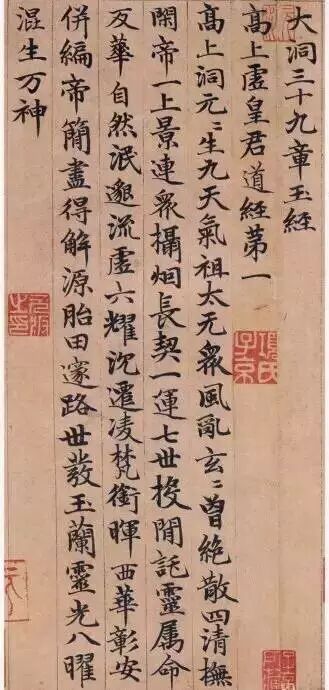 大洞三十九章玉經
高上虛皇君道經第一
高上洞元〻生九天氣祖太无衆風亂玄〻曾絶散四清撫
閑帝一上景連衆攝烟長契一運七世投閒託靈属命
反華自然泯邈流虛六耀沉遷凌梵衝暉西華彰安
併編帝簡盡得解源胎田邃路世敷玉蘭靈光八曜
混生万神
項氏子京